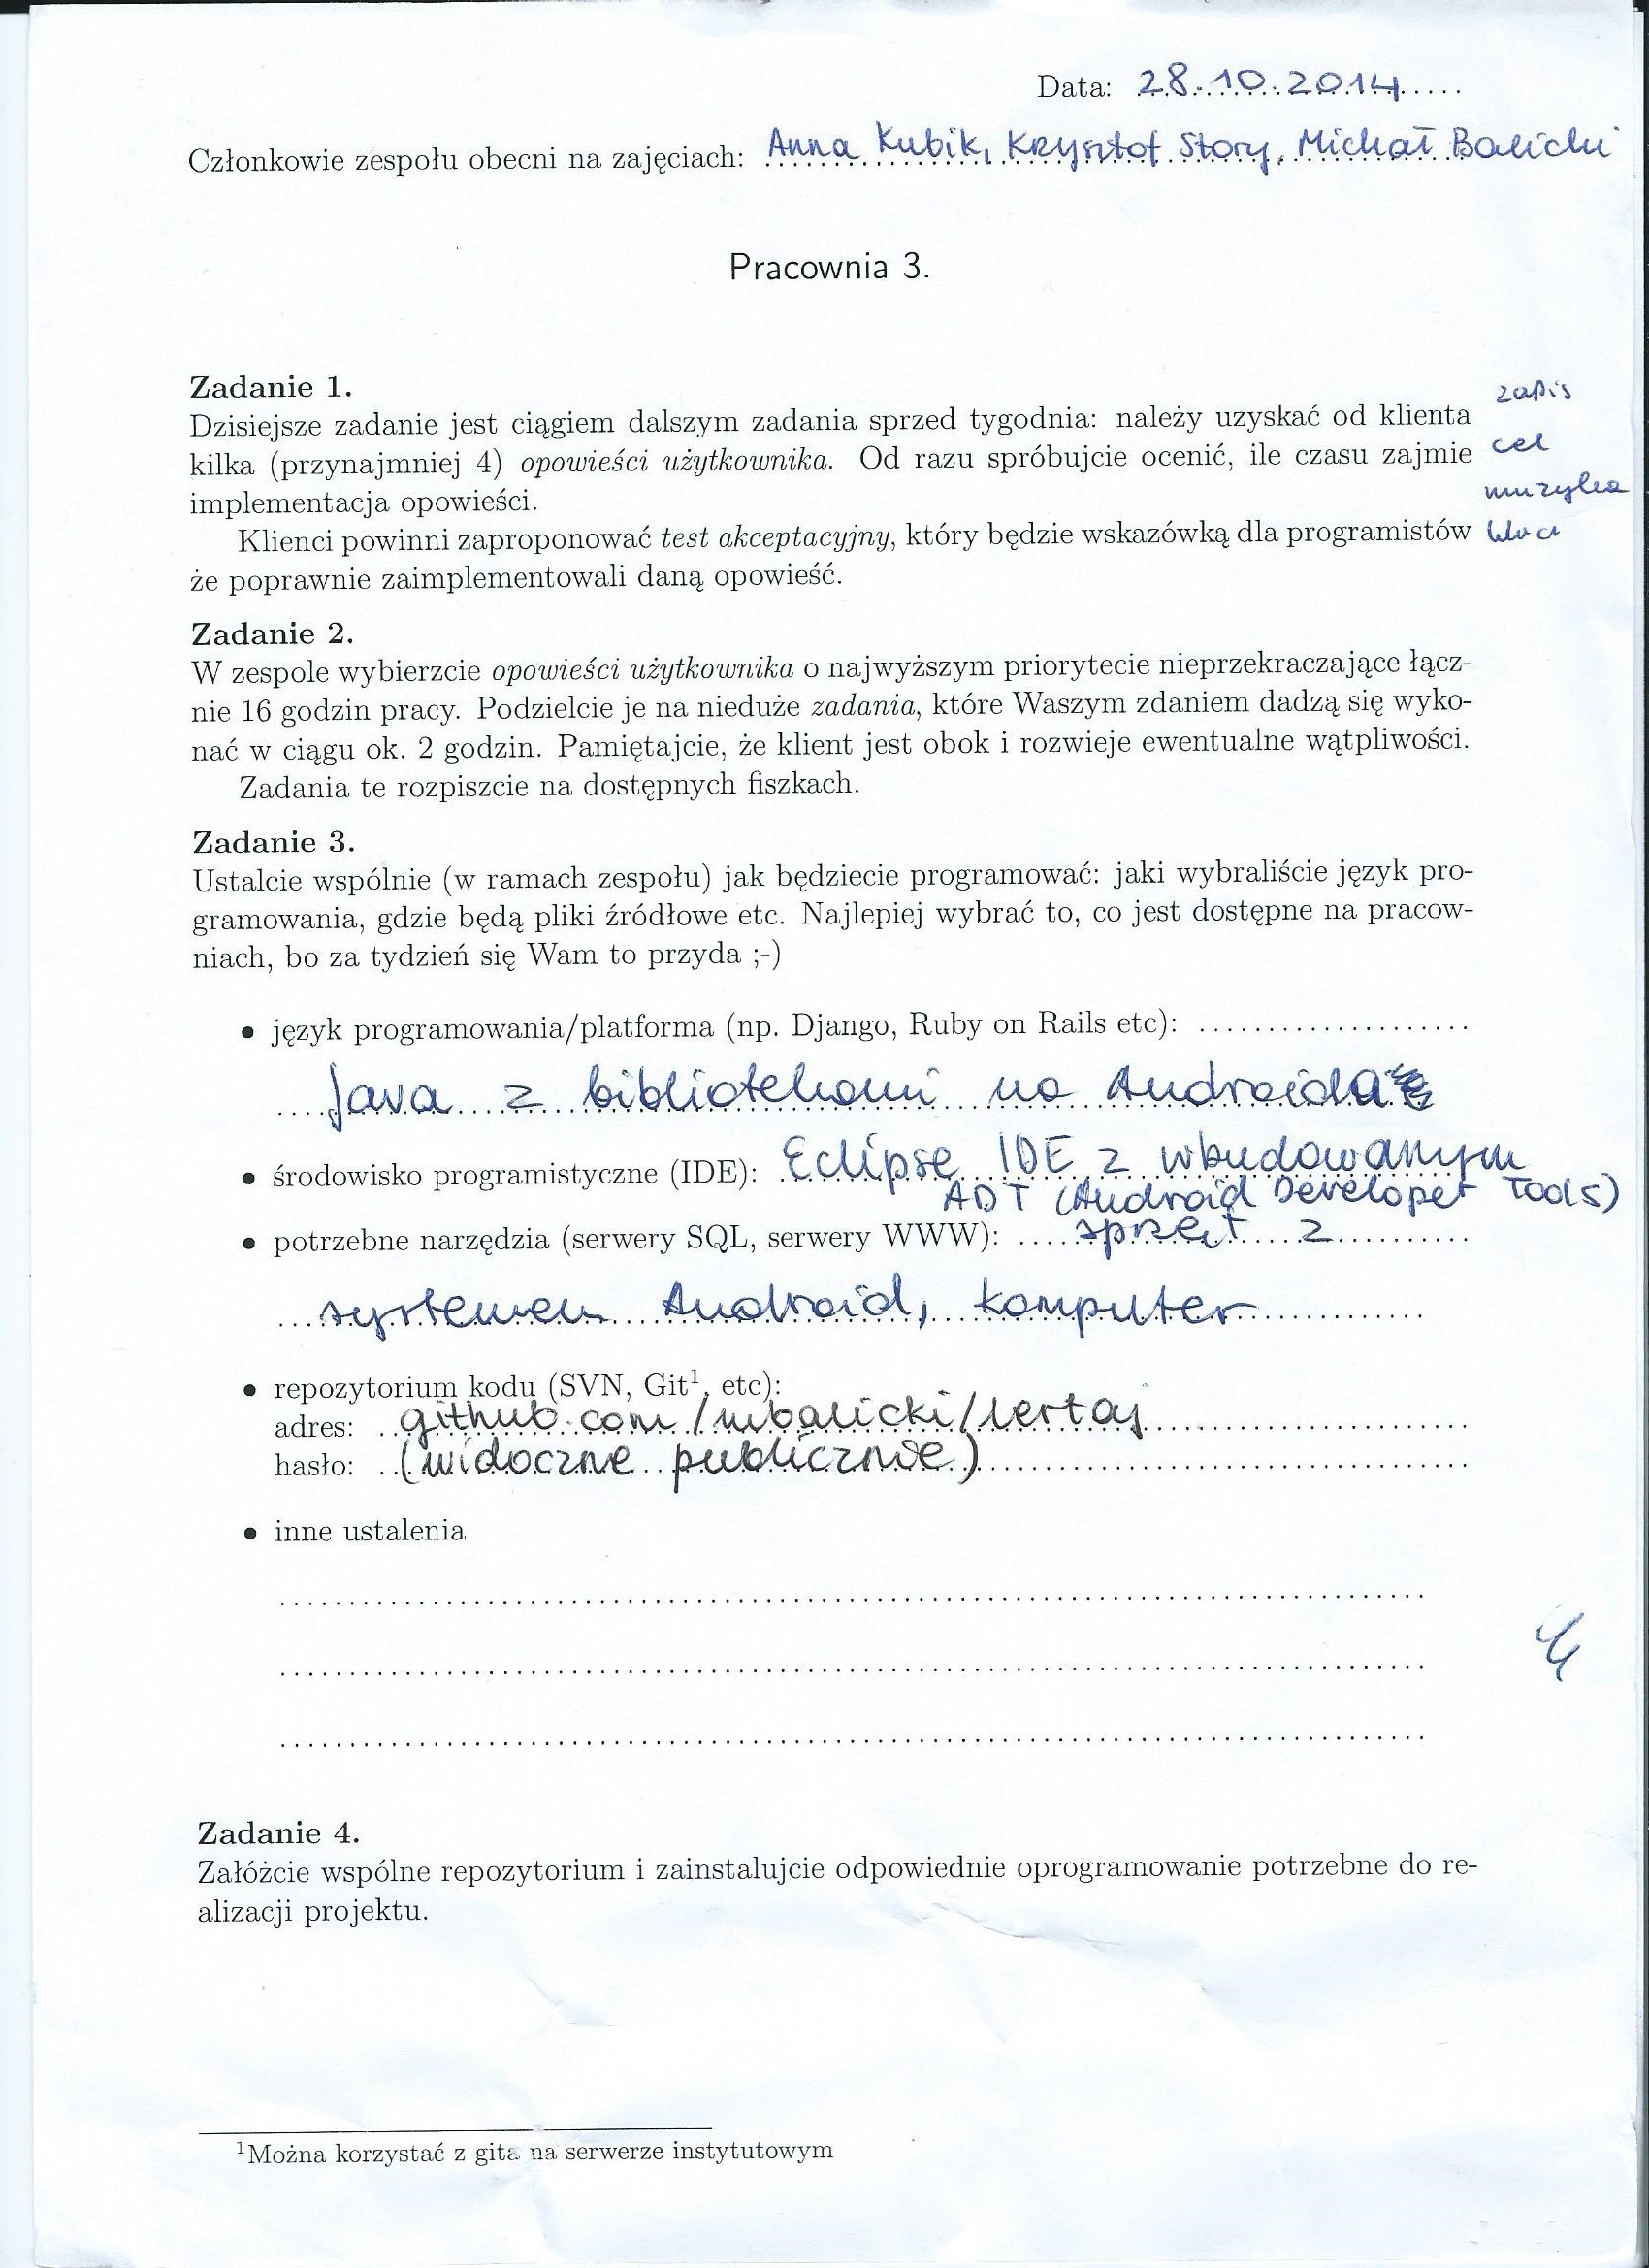 Data: 28.10.2014
Członkowie zespołu obecni na zajęciach: Anna Kubik, Krzysztof Story, Michał Balicki
Pracownia 3.
Zadanie 1.
zapis
Dzisiejsze zadanie jest ciągiem dalszym zadania sprzed tygodnia: należy uzyskać od klienta
kilka (przynajmniej 4) opowieści użytkownika. Od razu spróbujcie ocenić, ile czasu zajmie
cel
implementacja opowieści.
muzyka
Klienci powinni zaproponować test akceptacyjny, który będzie wskazówką dla programistów
że poprawnie zaimplementowali daną opowieść.
Zadanie 2.
W zespole wybierzcie opowieści użytkownika o najwyższym priorytecie nieprzekraczające łącz-
nie 16 godzin pracy. Podzielcie je na nieduże zadania, które Waszym zdaniem dadzą się wyko-
nać w ciągu ok. 2 godzin. Pamiętajcie, że klient jest obok i rozwieje ewentualne wątpliwości.
Zadania te rozpiszcie na dostępnych fiszkach.
Zadanie 3.
Ustalcie wspólnie (w ramach zespołu) jak będziecie programować: jaki wybraliście język pro-
gramowania, gdzie będą pliki źródłowe etc. Najlepiej wybrać to, co jest dostępne na pracow-
niach, bo za tydzień się Wam to przyda ;-)
• język programowania/platforma (np. Django, Ruby on Rails etc):
Java z bibliotekami na Androida
• środowisko programistyczne (IDE): Eclipse IDE z wbudowanym
ADT (Android Developer Tools)
• potrzebne narzędzia (serwery SQL, serwery WWW): sprzęt z
systemem Android, komputer
• repozytorium kodu (SVN, Git¹, etc):
adres: github.com/mbalicki/lertaj
hasło: (widoczne publicznie)
• inne ustalenia
Zadanie 4.
Załóżcie wspólne repozytorium i zainstalujcie odpowiednie oprogramowanie potrzebne do re-
alizacji projektu.
¹Można korzystać z gita na serwerze instytutowym